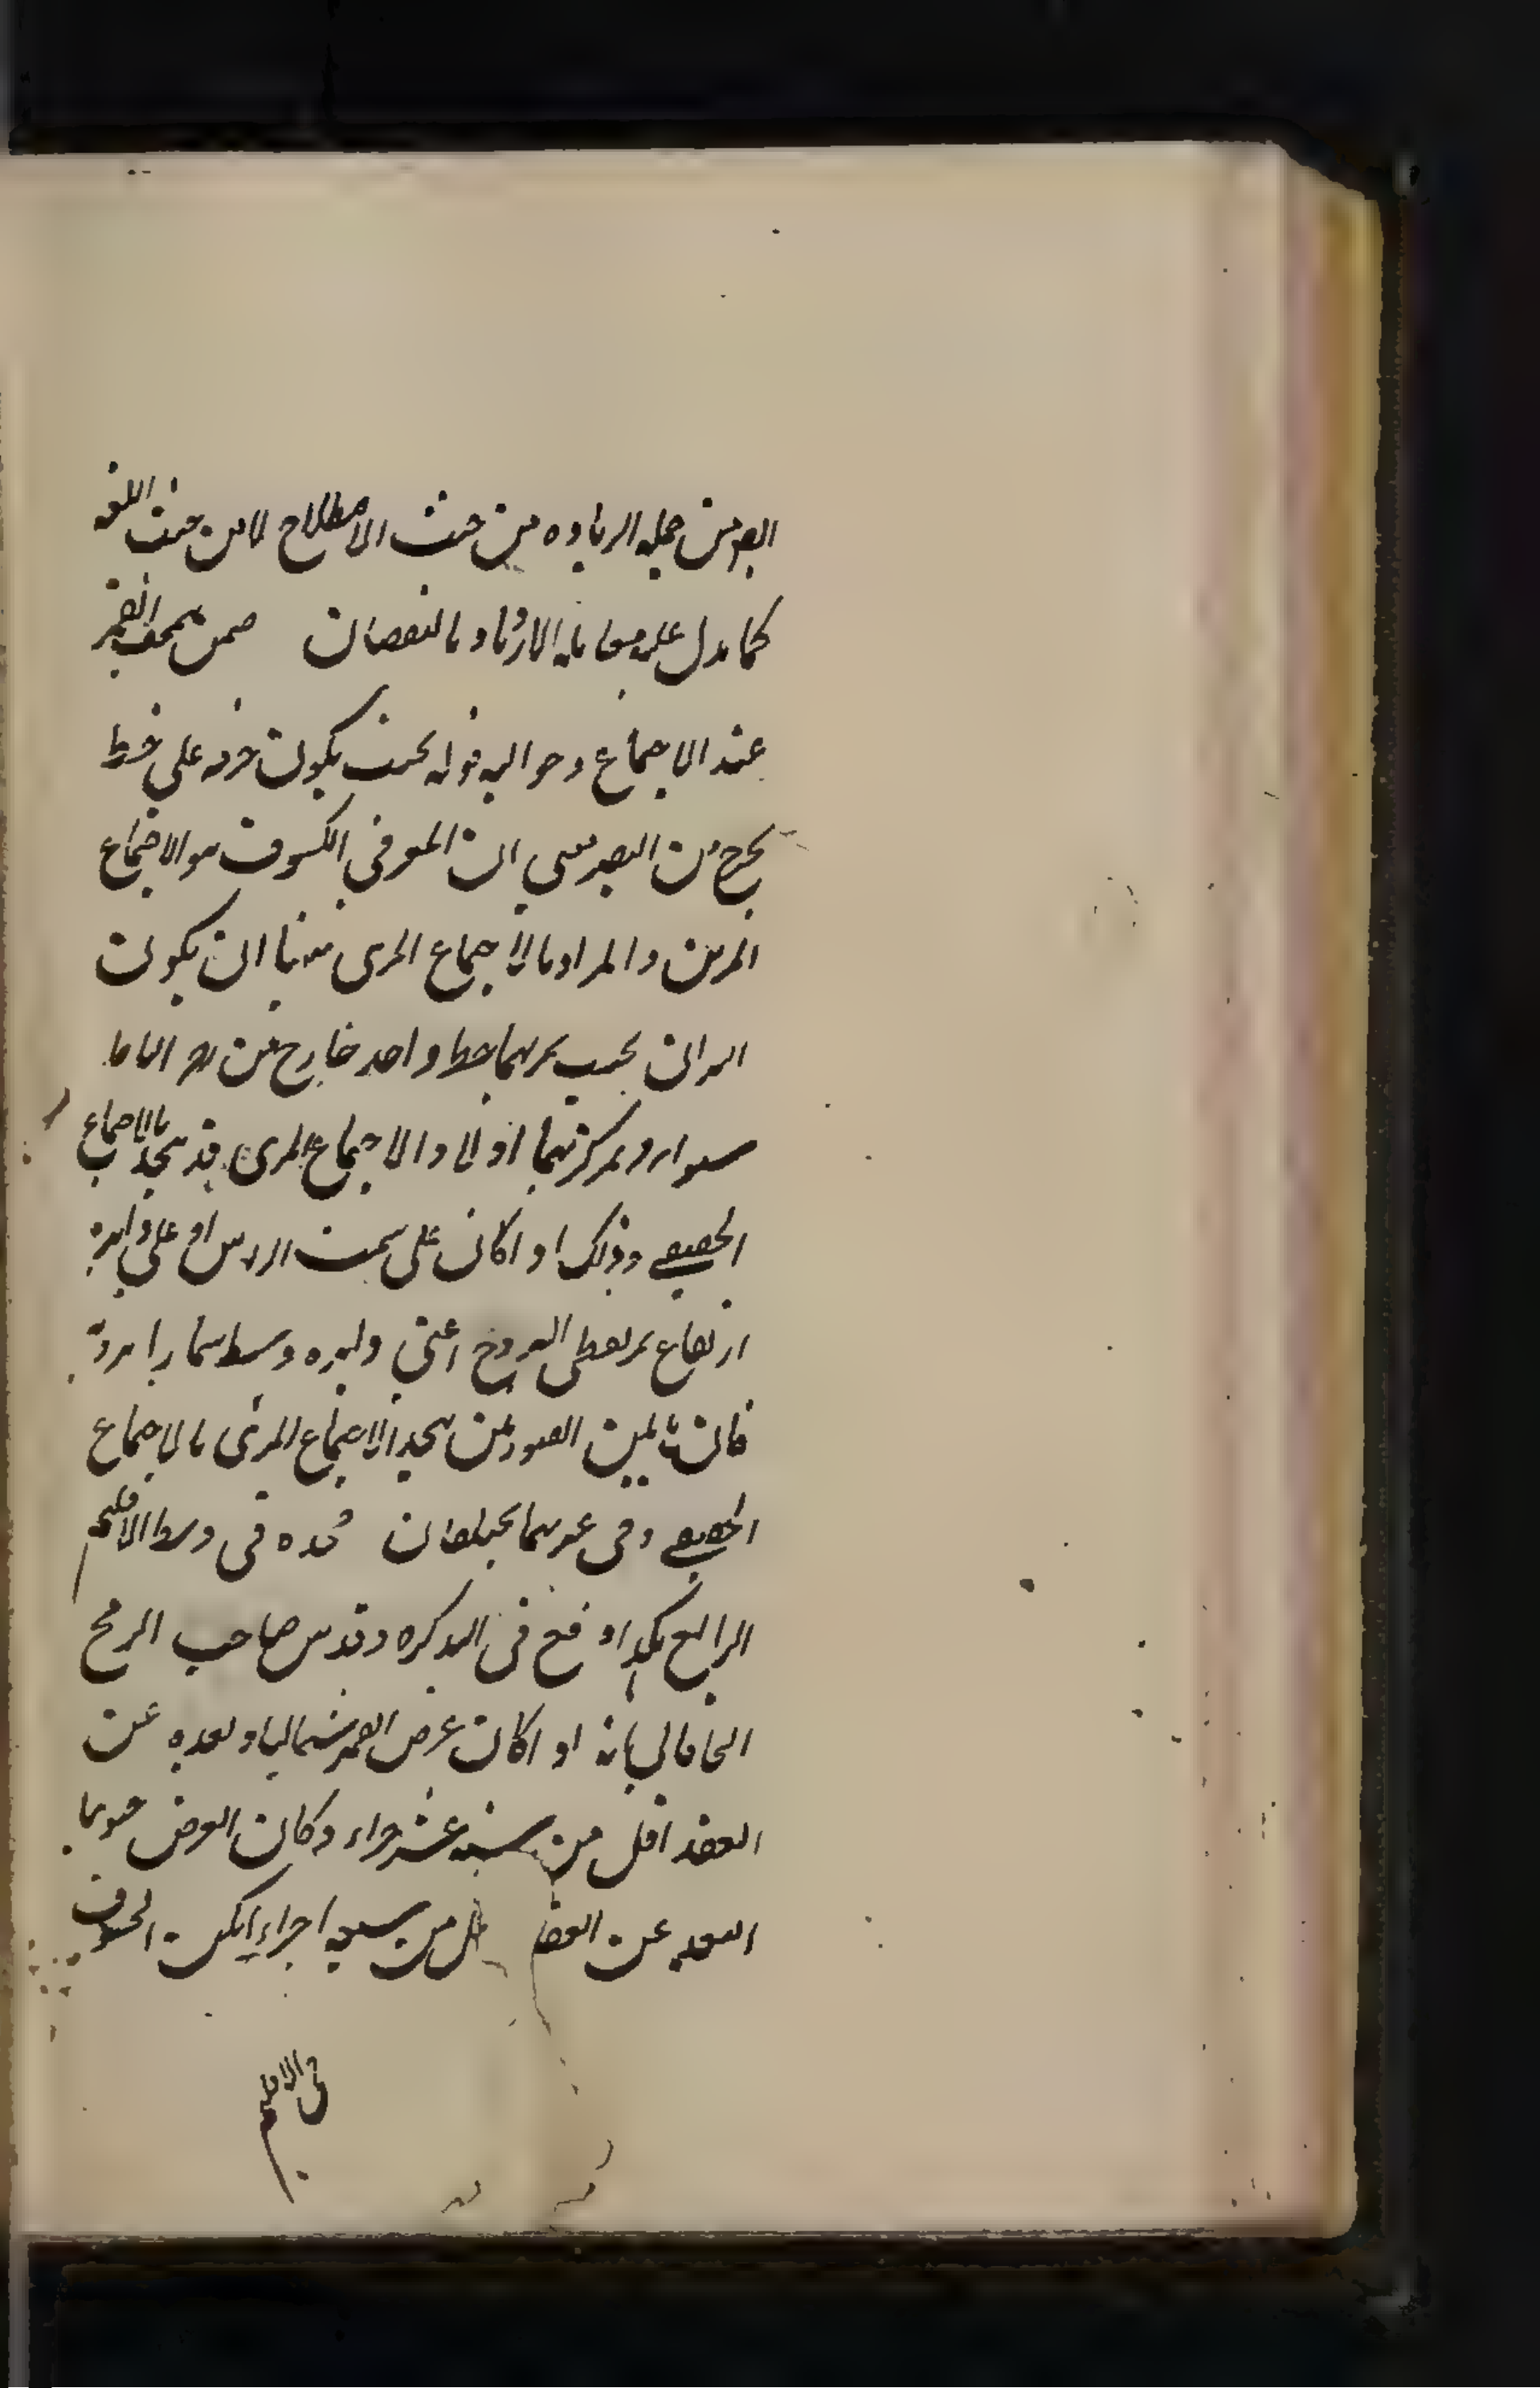 البصر من جملة الزيادة من حيث الاصطلاح لا من حيث اللغة
كما يدل عليه مقابلة الازدياد بالنقصان فمن ثم القمر
عند الاجتماع وحواليه قوله بحيث يكون جزء على خط
يخرج من البصر يعني ان المعتبر في الكسوف هو الاجتماع
المرئي والمراد بالاجتماع المرئي ههنا ان يكون
النيران بحيث يمر بهما خط واحد خارج من بصر الناظر
سواء مر بمركزيهما او لا والاجتماع المرئي قد يتحد بالاجتماع
الحقيقي وذلك اذا كان على سمت الراس او على دائرة
ارتفاع تمر بقطبي البروج اعني دائرة وسط سماء الرؤية
فان في هاتين الصورتين يتحد الاجتماع المرئي بالاجتماع
الحقيقي وفي غيرهما يختلفان قوله في وسط الاقليم
الرابع هكذا وقع في التذكرة وقد بين صاحب الزيج
الخاقاني بانه اذا كان عرض القمر شماليا وبعده عن
العقدة اقل من ستة عشر جزاء وكان العرض جنوبيا
البعد عن العقدة اقل من سبعة اجزاء امكن الخسوف
في الاقليم